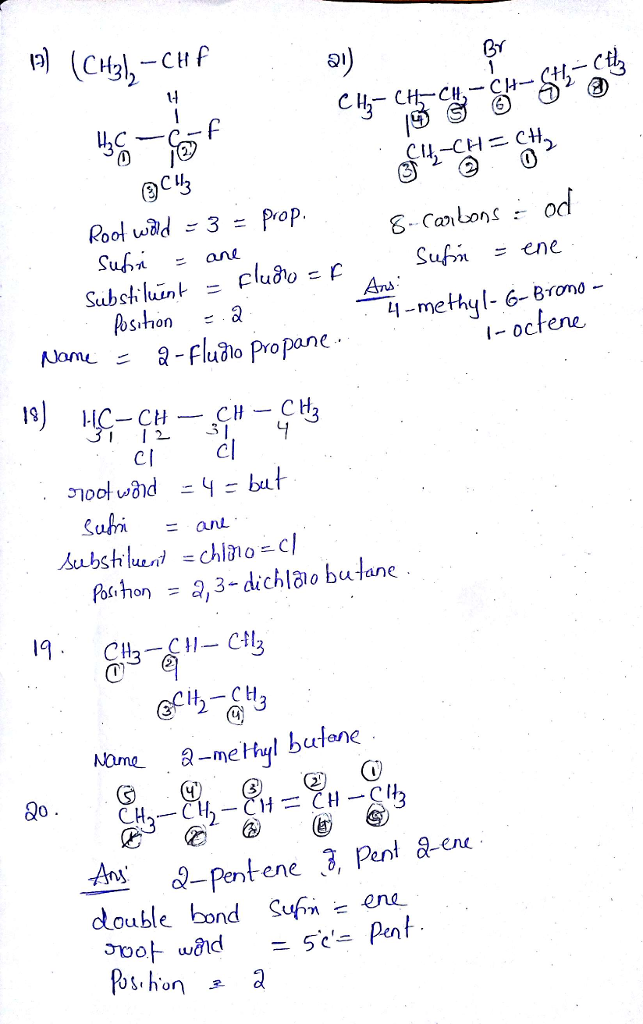 17) (CH3)2 - CHF
H
|
H3C — C - F
① | ②
③ CH3
Root word = 3 = prop.
Sufix = ane
Substituent = Fluoro = F
Position = 2
Name = 2-fluoro propane.
21)
Br
|
CH3 - CH - CH2 - CH - CH2 - CH3
| ④ ⑤ ⑥ ⑦ ⑧
CH2 - CH = CH2
③ ② ①
8-Carbons = oct
Sufix = ene
Ans: 4-methyl-6-Bromo-
1-octene
18) H3C - CH — CH - CH3
1 | 2 3 | 4
Cl Cl
root word = 4 = but
Sufix = ane
Substituent = chloro = cl
Position = 2,3-dichloro butane.
19. CH3 - CH - CH3
① ②
③ CH2 - CH3
④
Name 2-methyl butane.
20. ⑤ ④ ③ ② ①
CH3 - CH2 - CH = CH - CH3
Ans: 2-pentene Pent 2-ene.
double bond Sufix = ene
root word = 5'c' = Pent.
Position = 2